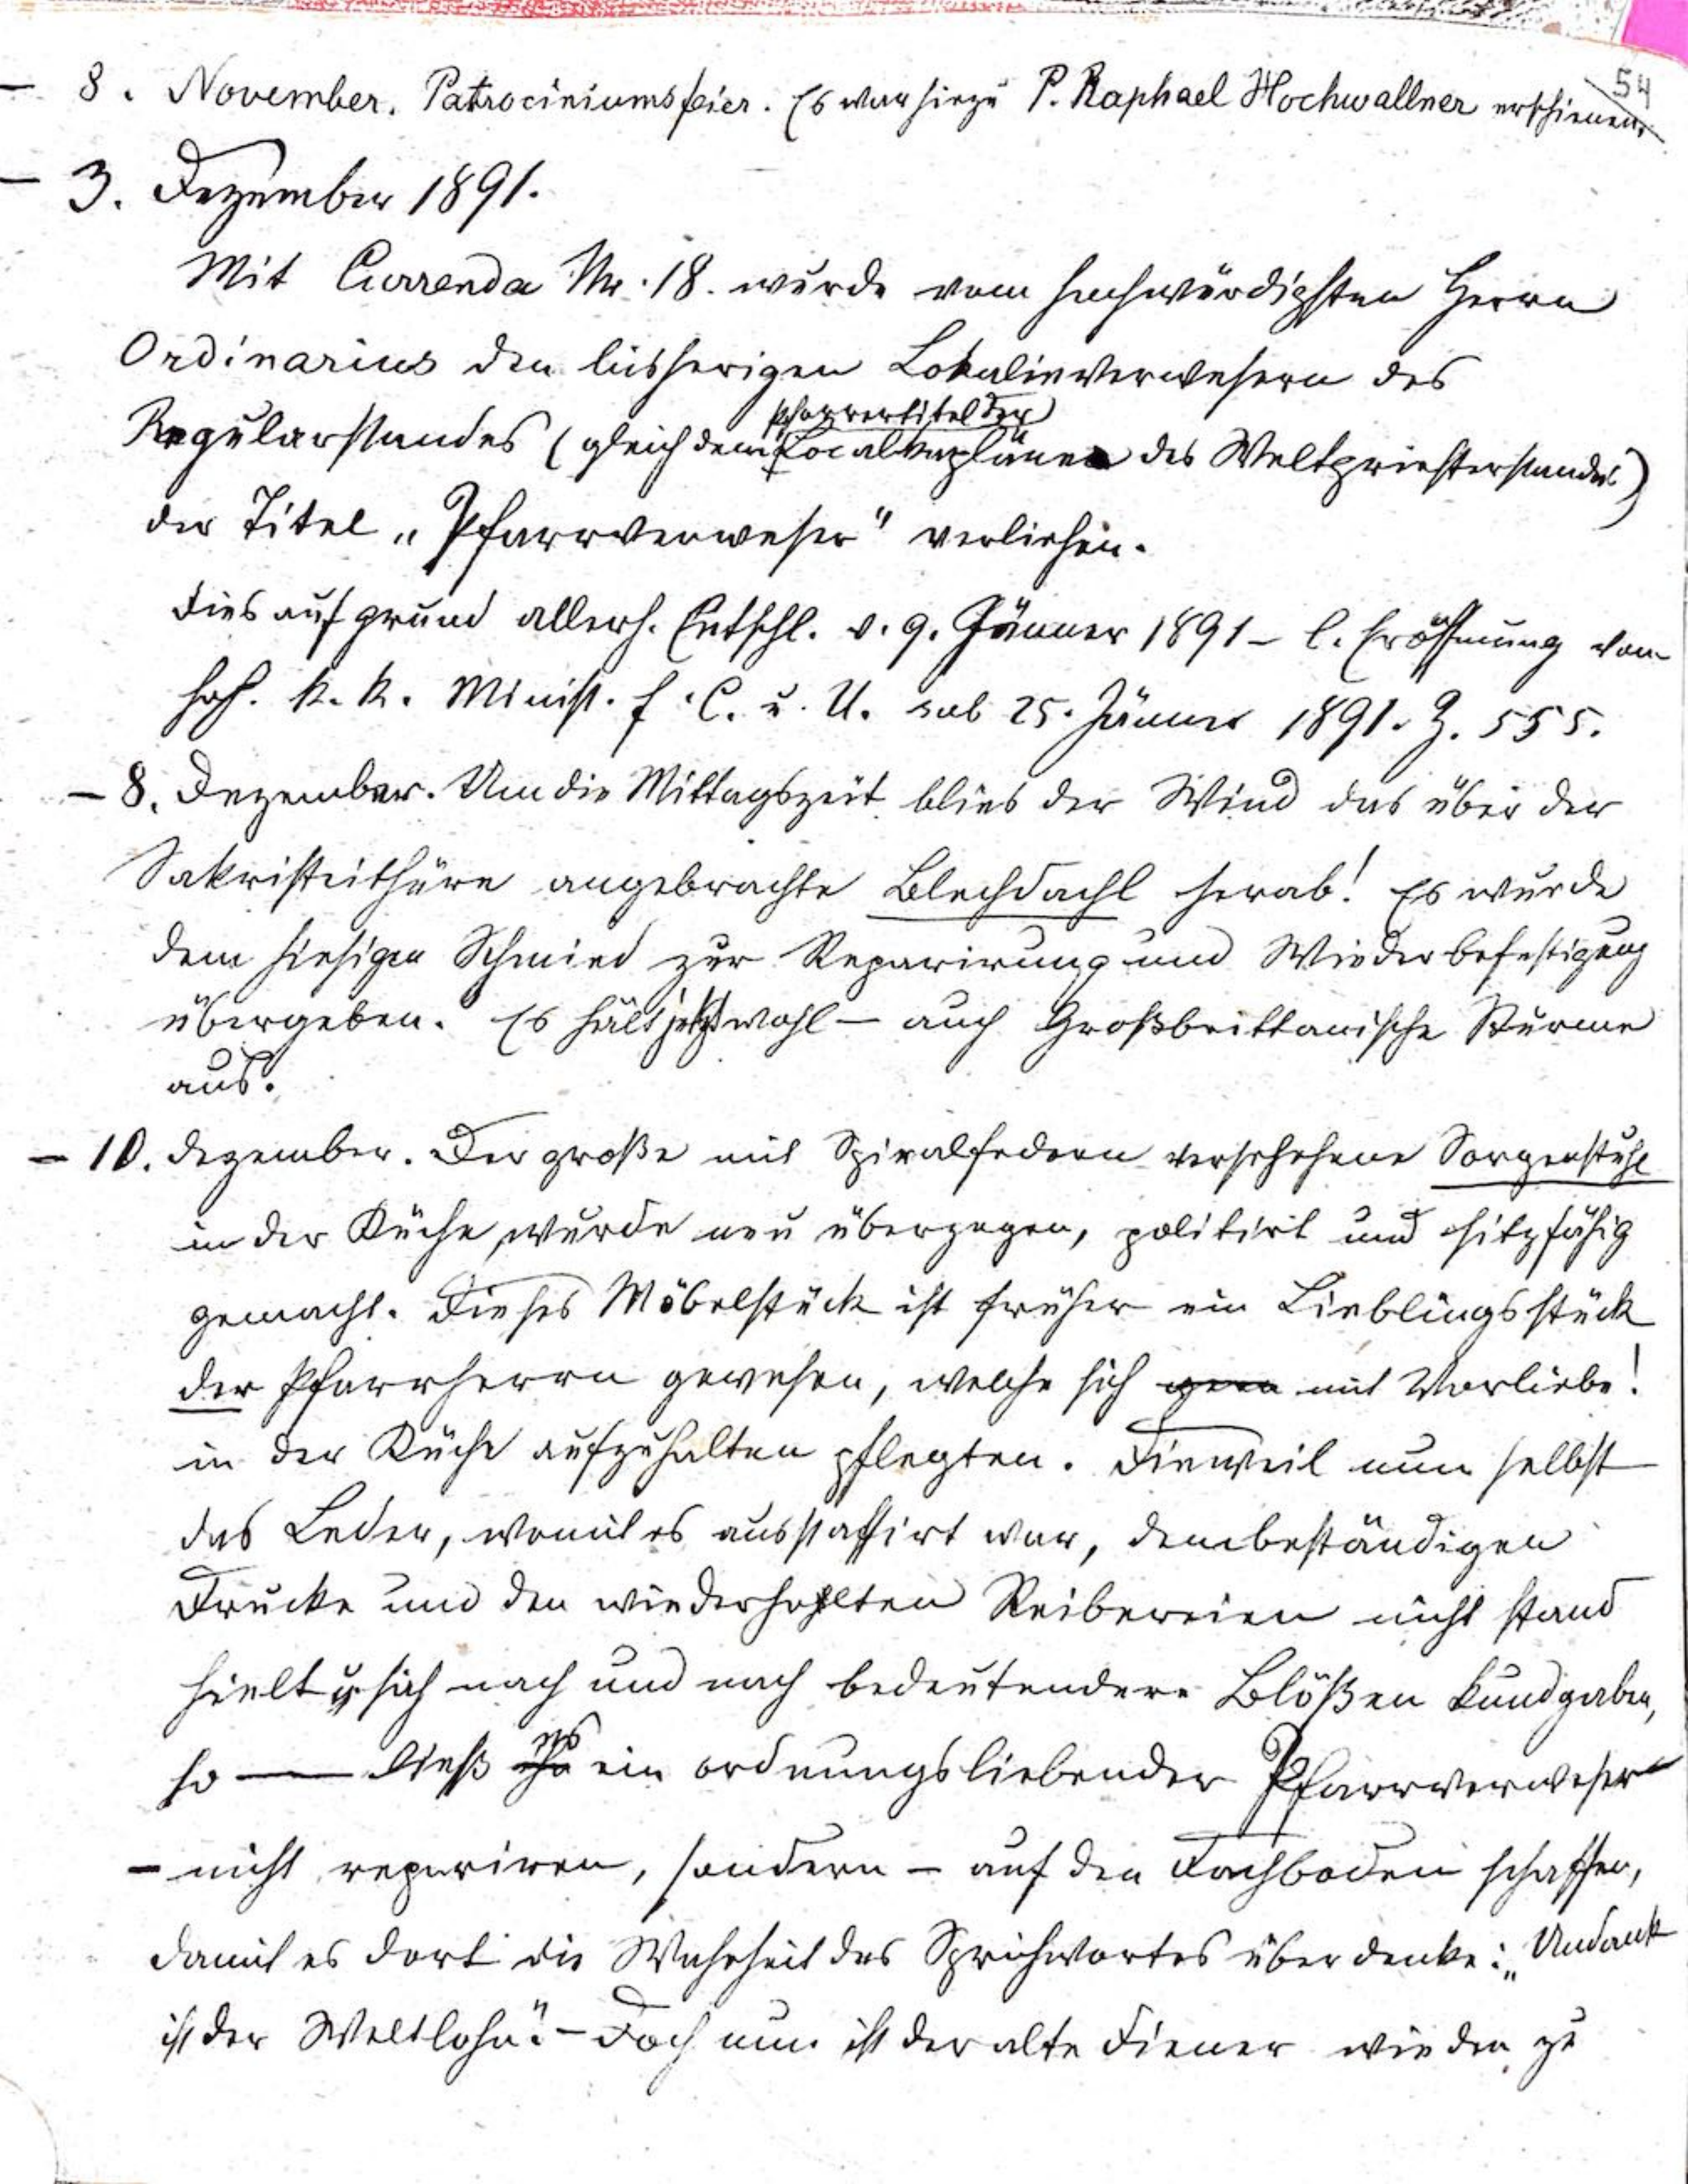 54
– 8. November. Patrociniumsfeier. Es war hiezu P. Raphael Hochwallner erschienen.
– 3. Dezember 1891.
Mit Currenda Nr. 18. wurde vom hochwürdigsten Herrn
Ordinarius den bisherigen Lokalieverwesern des
Pfarrertitel der
Regularstandes (gleich dem Localkapläne des Weltpriesterstandes)
der Titel „Pfarrverweser" verliehen.
Dies auf grund allerh. Entschl. v. 9. Jänner 1891 – l. Eröffnung vom
hoh. k. k. Minist. f. C. u. U. sub 25. Jänner 1891. Z. 555.
– 8. Dezember. Um die Mittagszeit blies der Wind das über der
Sakristeithüre angebrachte Blechdachl herab! Es wurde
dem hiesigen Schmied zur Reparirung und Wiederbefestigung
übergeben. Es hält jetzt wohl – auch Großbrittanische Stürme
aus.
– 10. Dezember. Der große mit Spiralfedern versehene Sorgenstuhl
in der Küche wurde neu überzogen, politirt und sitzfähig
gemacht. Dieses Möbelstück ist früher ein Lieblingsstück
der Pfarrherrn gewesen, welche sich gern mit Vorliebe!
in der Küche aufzuhalten pflegten. Dieweil nun selbst
das Leder, womit es ausstaffirt war, dem beständigen
Drucke und den wiederholten Reibereien nicht stand
hielt u. sich nach und nach bedeutendere Blößen kundgaben,
es
so — ließ ihn ein ordnungsliebender Pfarrverweser
– nicht repariren, sondern – auf den Dachboden schaffen,
damit es dort die Wahrheit des Sprichwortes überdenke: „Undank
ist der Weltlohn". – Doch nun ist der alte Diener wieder zu